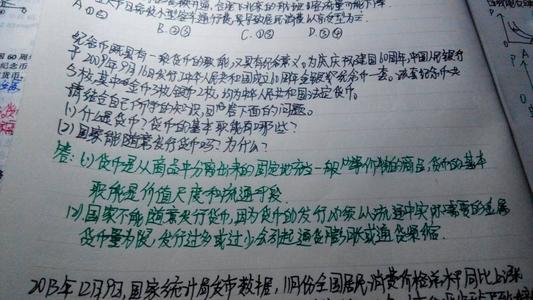 B.②③ C.①③ D.②④
纪念币既具有一般货币的职能,又具有纪念意义。为庆祝建国60周年,中国人民银行
于2009年9月16日发行中华人民共和国成立60周年金银纪念币一套。该套纪念币共
5枚,其中金币3枚,银币2枚,均为中华人民共和国法定货币。
请结合自己所学的知识,回答下面的问题。
(1)什么是货币?货币的基本职能有哪些?
(2)国家能随意发行货币吗?为什么?
答:(1)货币是从商品中分离出来的固定地充当一般等价物的商品,货币的基本
职能是价值尺度和流通手段.
(2)国家不能随意发行货币,因为货币的发行必须以流通中实际需要的金属
货币量为限,发行过多或过少会引起通货膨胀或通货紧缩.
2013年12月9日,国家统计局发布数据,11月份全国居民消费价格总水平同比上涨